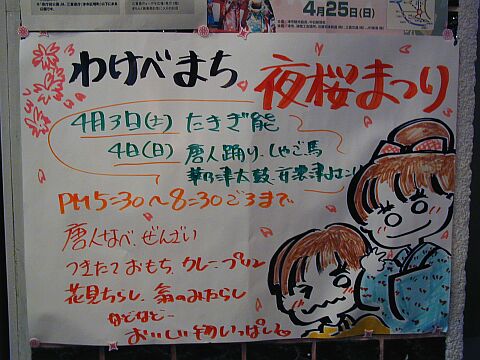 4月25日(日)
わけべまち 夜桜まつり
4月3日(土) たきぎ能
4日(日) 唐人踊り、しゃご馬
津太鼓、安濃津よさこい
PM5:30〜8:30ごろまで
唐人なべ、ぜんざい
つきたておもち、クレープリン
花見ちらし、翁のみたらし
などなど…
おいしい物いっぱい